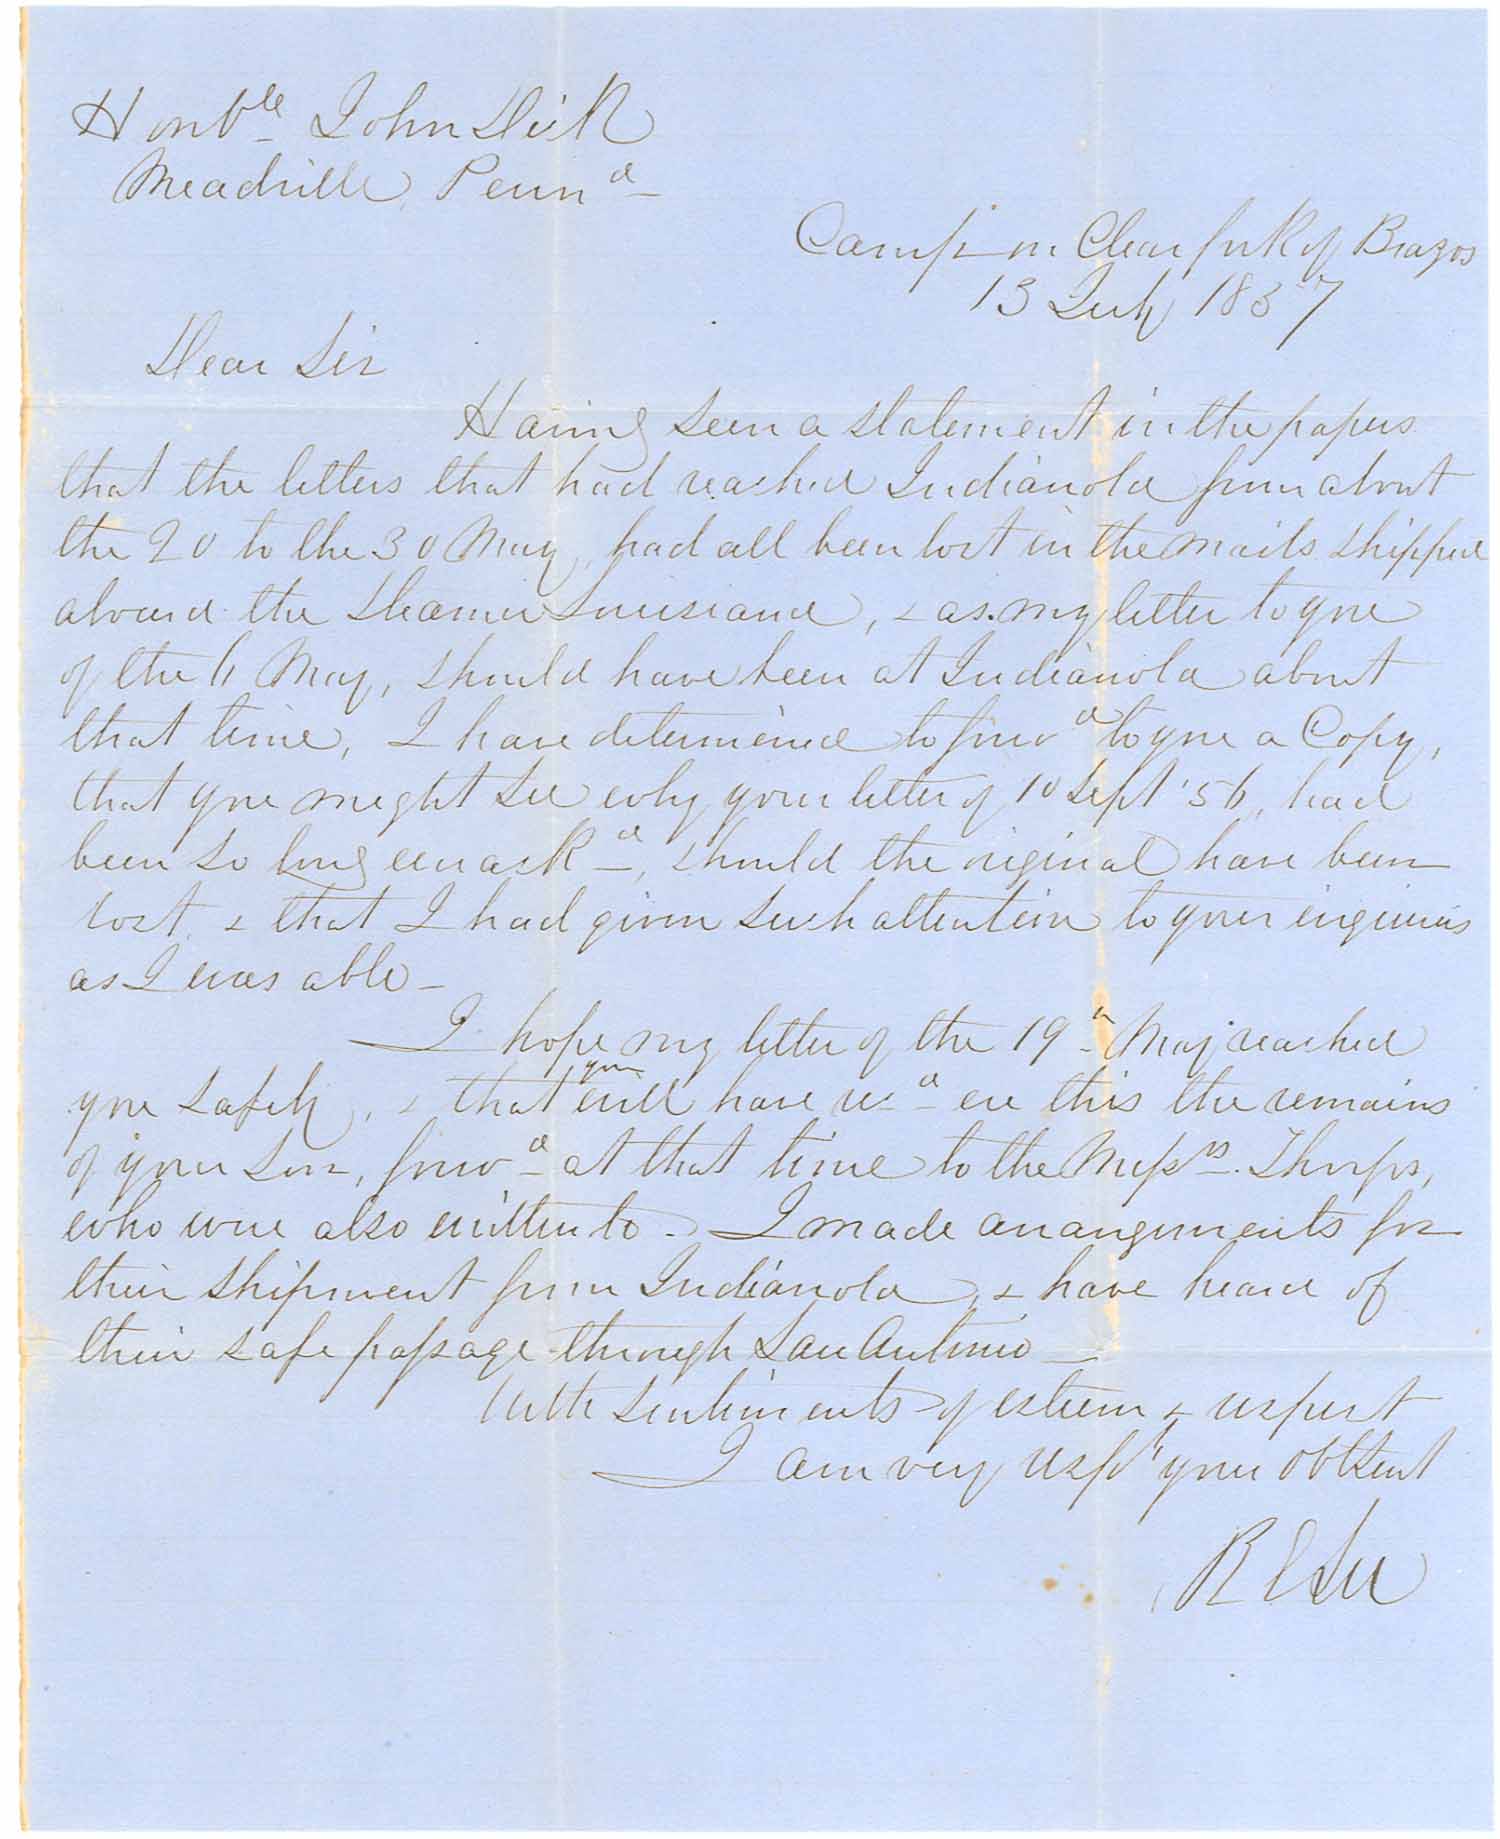 Honble John Dick
Meadville, Penna
Camp on Clear fork of Brazos
13 July 1857
Dear Sir
Having seen a statement in the papers
that the letters that had reached Indianola from about
the 20 to the 30 May, had all been lost in the mails shipped
aboard the Steamer Louisiana, & as my letter to you
of the 6 May, should have been at Indianola about
that time, I have determined to forwd to you a Copy,
that you might see why your letter of 10 Sept '56, had
been so long unackd, should the original have been
lost, & that I had given such attention to your inquiries
as I was able -
I hope my letter of the 19th May reached
you safely, & that you will have recd ere this the remains
of your Son, forwd at that time to the Messrs. Thorps,
who were also written to - I made arrangements for
their shipment from Indianola, & have heard of
their safe passage through San Antonio -
With sentiments of esteem & respect
I am very respt your obtsevt
R E Lee